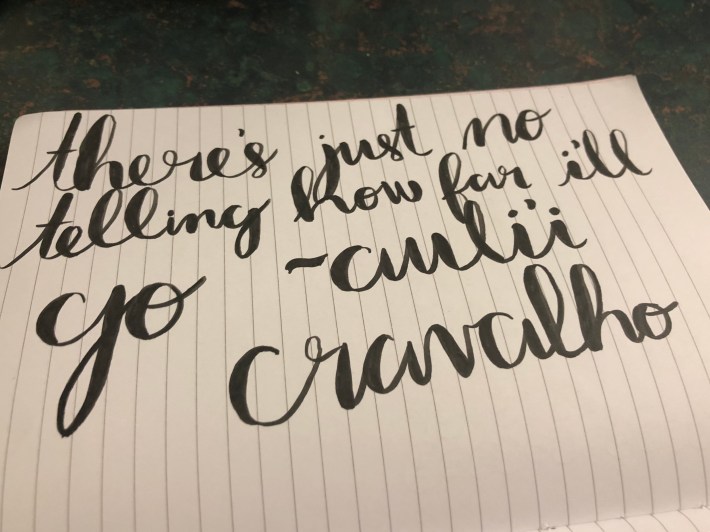 there's just no
telling how far i'll
go ~auli'i
cravalho